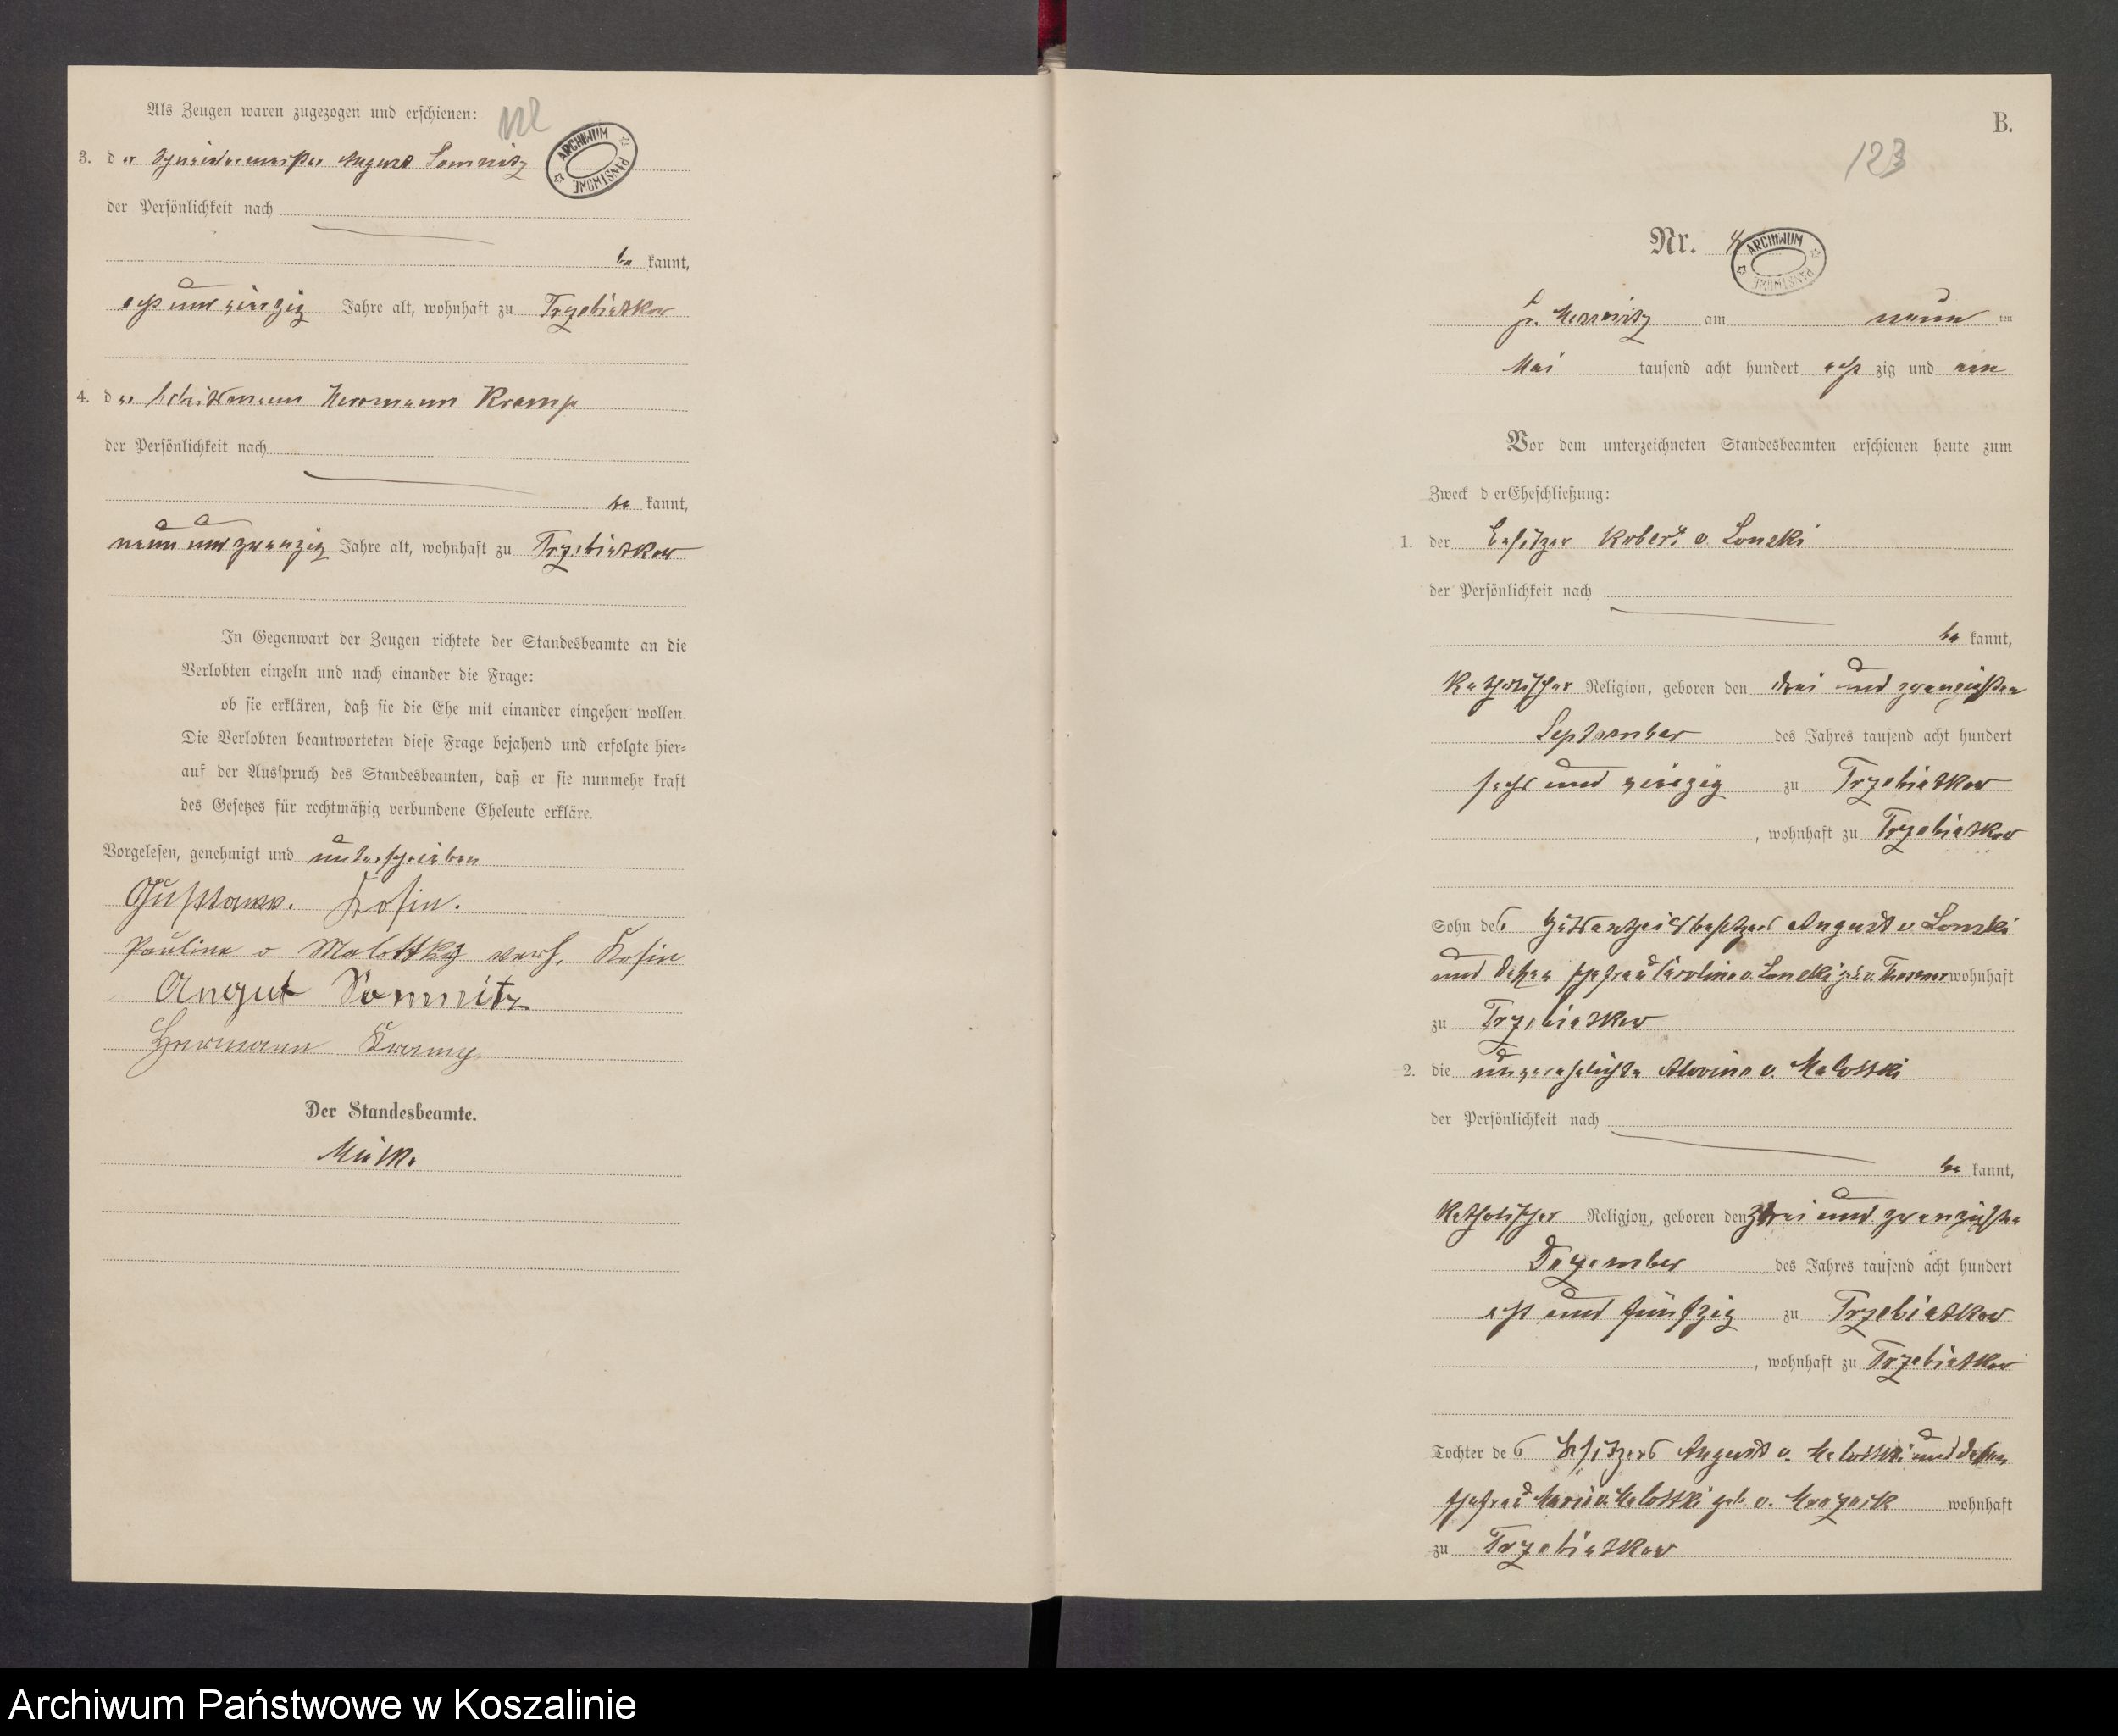 Als Zeugen waren zugezogen und erschienen:
122
ARCHIWUM PAŃSTWOWE
3. der Schneidermeister August Somnitz
der Persönlichkeit nach
be kannt,
acht und vierzig Jahre alt, wohnhaft zu Trzebiatkow
4. der Hermann Kramp
der Persönlichkeit nach
be kannt,
neun und zwanzig Jahre alt, wohnhaft zu Trzebiatkow
In Gegenwart der Zeugen richtete der Standesbeamte an die
Verlobten einzeln und nach einander die Frage:
ob sie erklären, daß sie die Ehe mit einander eingehen wollen.
Die Verlobten beantworteten diese Frage bejahend und erfolgte hier-
auf der Ausspruch des Standesbeamten, daß er sie nunmehr kraft
des Gesetzes für rechtmäßig verbundene Eheleute erkläre.
Vorgelesen, genehmigt und unterschrieben
Gusttaww. Kosin.
Pauline v Malottky verh. Kosin
Angut Somnitz
Hermann Kramp
Der Standesbeamte.
B.
123
Nr. 4
ARCHIWUM PAŃSTWOWE
am neun ten
Mai tausend acht hundert acht zig und ein
Vor dem unterzeichneten Standesbeamten erschienen heute zum
Zweck der Eheschließung:
1. der Besitzer Robert v. Lonski
der Persönlichkeit nach
be kannt,
katholischer Religion, geboren den drei und zwanzigsten
September des Jahres tausend acht hundert
sechs und vierzig zu Trzebiatkow
, wohnhaft zu Trzebiatkow
Sohn des Gutsantheilsbesitzers August v Lonski
und dessen Ehefrau Caroline v. Lonski geb. v. wohnhaft
zu Trzebiatkow
2. die unverehelichte Alwine v. Malottki
der Persönlichkeit nach
be kannt,
katholischer Religion, geboren den zwei und zwanzigsten
Dezember des Jahres tausend acht hundert
acht und fünfzig zu Trzebiatkow
, wohnhaft zu Trzebiatkow
Tochter des Besitzers August v. Malottki und dessen
Ehefrau Marie v. Malottki geb. v. wohnhaft
zu Trzebiatkow
Archiwum Państwowe w Koszalinie